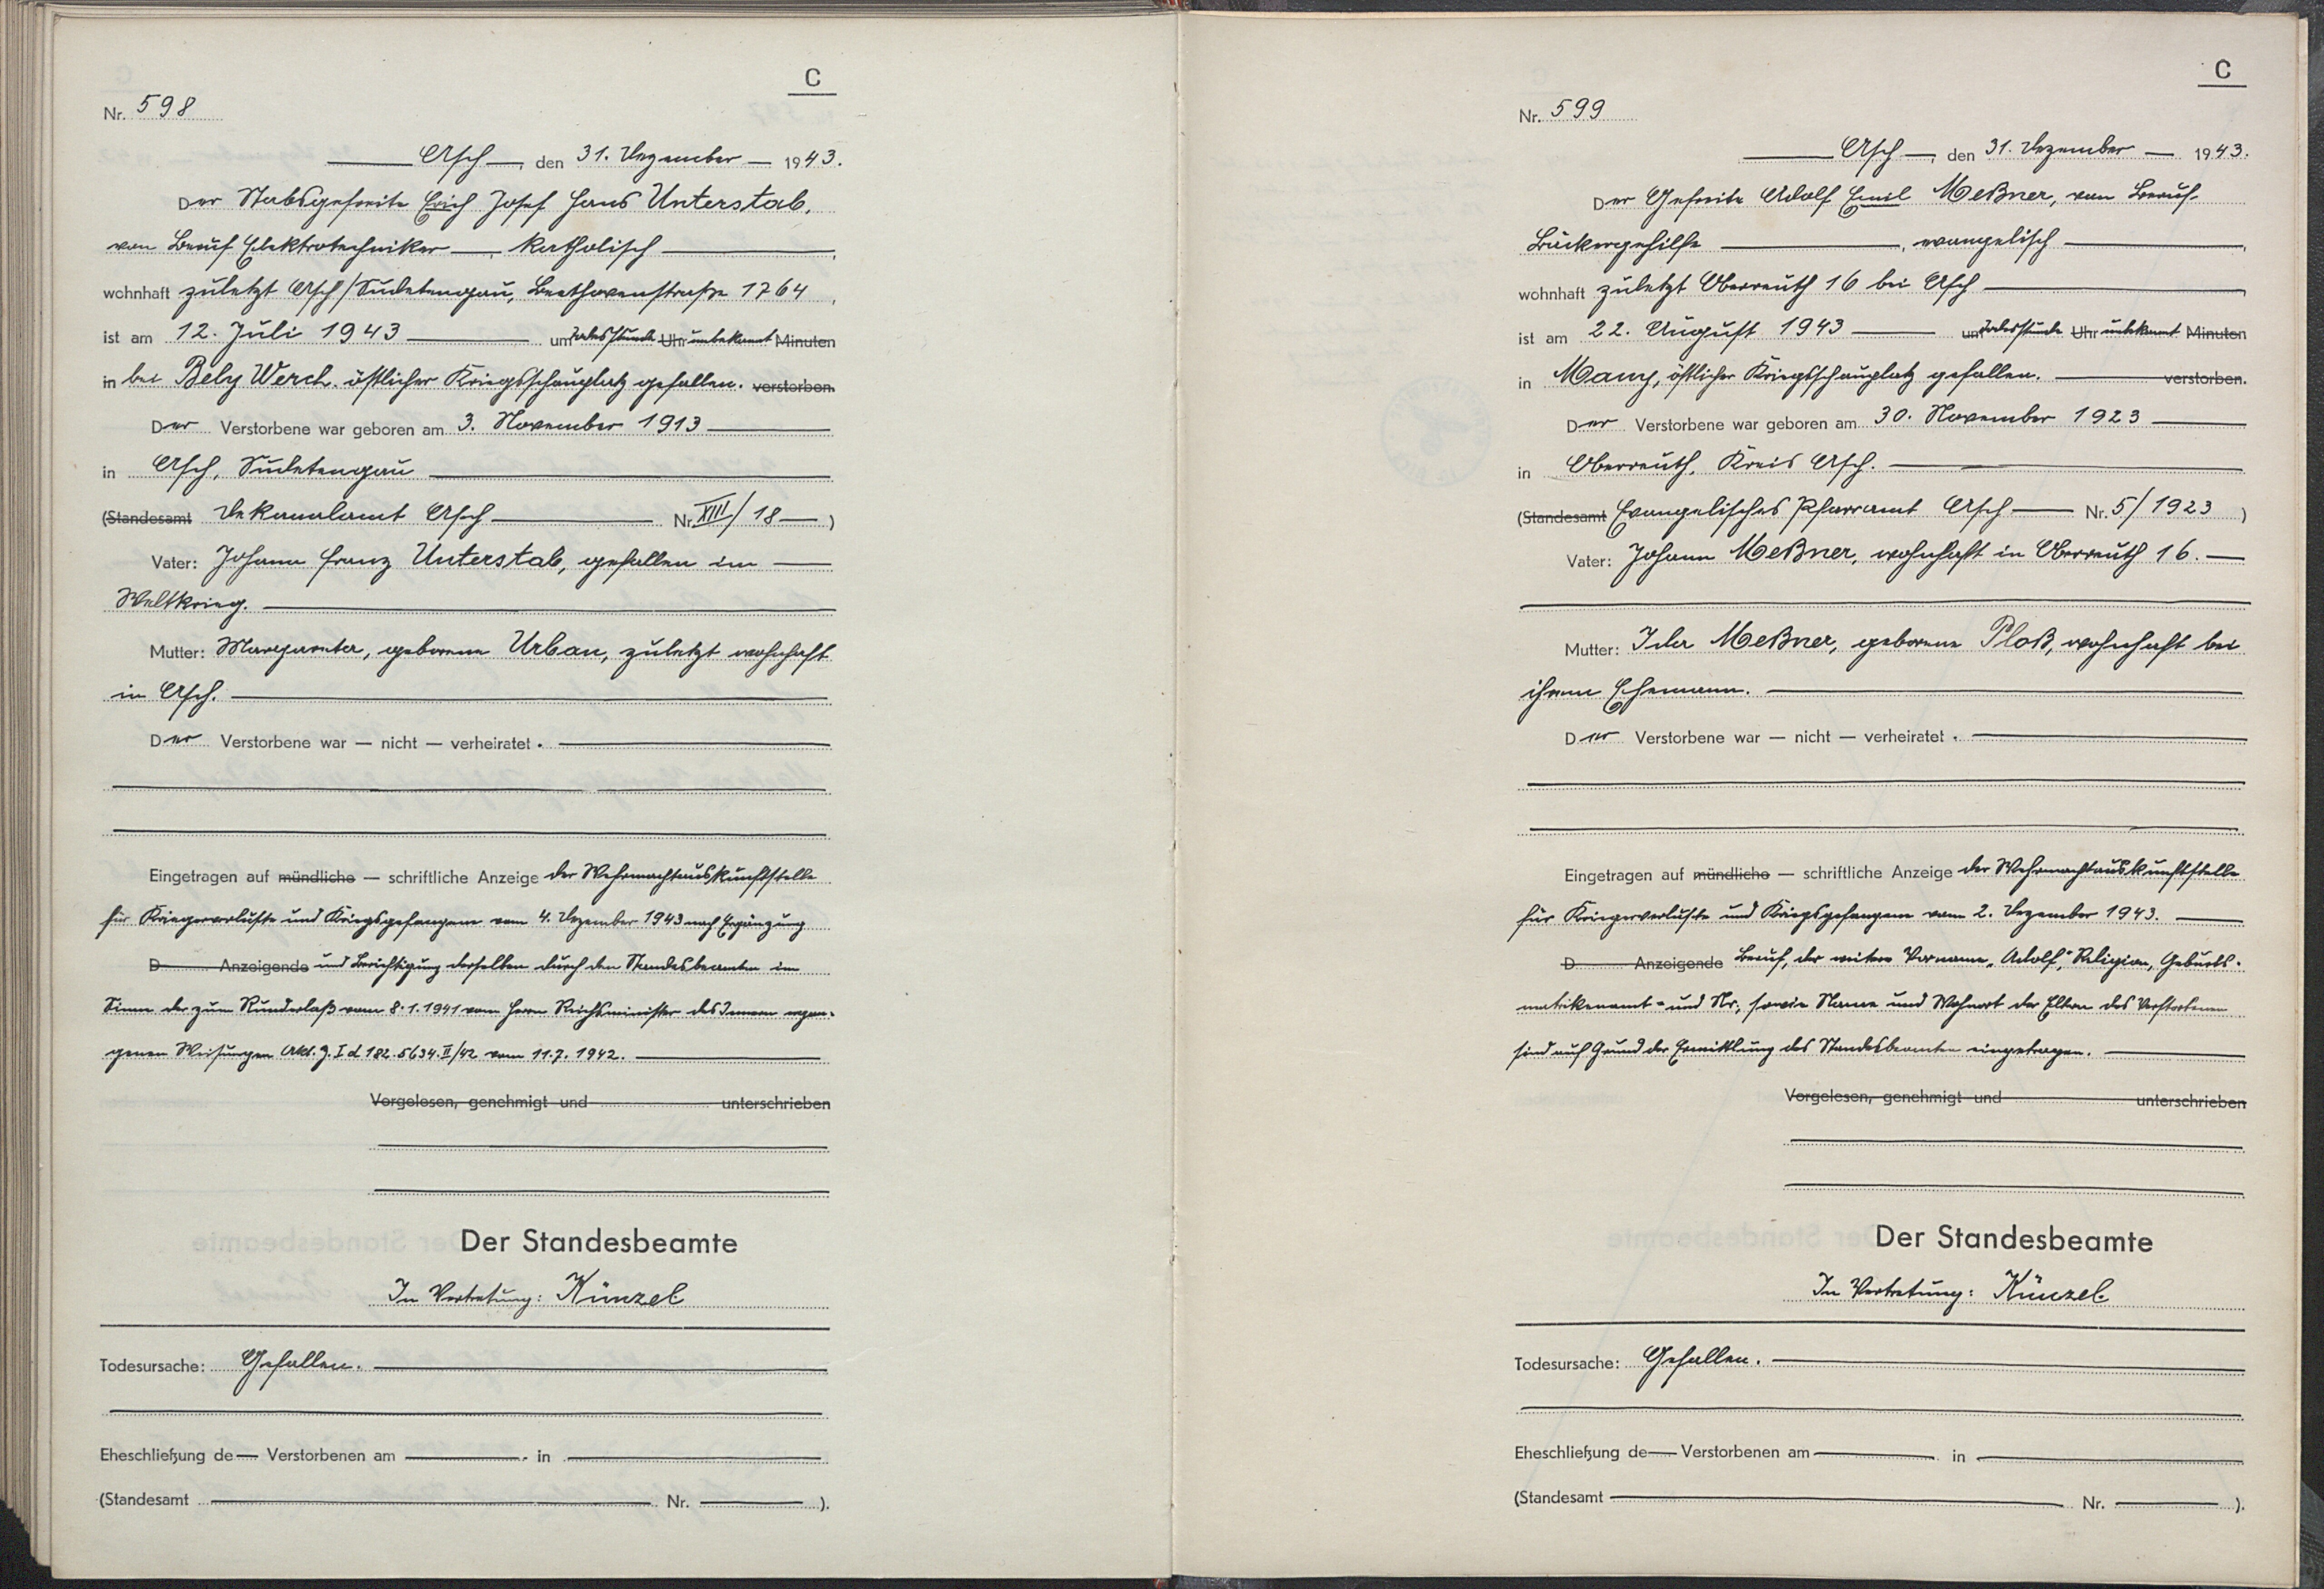 C
Nr. 598
Asch, den 31. Dezember 1943.
Der Stabsgefreite Erich Josef Hans Unterstab,
von Beruf Elektrotechniker, katholisch,
wohnhaft zuletzt Asch/Sudetengau, Beethovenstraße 1764,
ist am 12. Juli 1943 um Todesstunde Uhr unbekannt Minuten
in bei Bely Werch. östlicher Kriegsschauplatz gefallen. verstorben.
Der Verstorbene war geboren am 3. November 1913
in Asch, Sudetengau
(Standesamt Dekanalamt Asch Nr. XIII/18)
Vater: Johann Franz Unterstab, gefallen im
Weltkrieg.
Mutter: Margareta, geborene Urban, zuletzt wohnhaft
in Asch.
Der Verstorbene war — nicht — verheiratet.
Eingetragen auf mündliche — schriftliche Anzeige der Wehrmachtauskunftstelle
für Kriegerverluste und Kriegsgefangene vom 4. Dezember 1943 nach Ergänzung
D Anzeigende und Berichtigung derselben durch den Standesbeamten im
Sinne der zum Runderlaß vom 8.1.1941 vom Herrn Reichsminister des Innern ergan-
genen Weisungen Akt. Z. I d 182.5634.II/42 vom 11.7.1942.
Vorgelesen, genehmigt und unterschrieben
Der Standesbeamte
In Vertretung: Künzel
Todesursache: Gefallen.
Eheschließung de Verstorbenen am in
(Standesamt Nr. ).
C
Nr. 599
Asch, den 31. Dezember 1943.
Der Gefreite Adolf Emil Meßner, von Beruf
Bäckergehilfe, evangelisch,
wohnhaft zuletzt Oberreuth 16 bei Asch,
ist am 22. August 1943 um Todesstunde Uhr unbekannt Minuten
in östlicher Kriegsschauplatz gefallen. verstorben.
Der Verstorbene war geboren am 30. November 1923
in Oberreuth, Kreis Asch.
(Standesamt Evangelisches Pfarramt Asch Nr. 5/1923)
Vater: Johann Meßner, wohnhaft in Oberreuth 16.
Mutter: Ida Meßner, geborene Ploß, wohnhaft bei
ihrem Ehemann.
Der Verstorbene war — nicht — verheiratet.
Eingetragen auf mündliche — schriftliche Anzeige der Wehrmachtauskunftstelle
für Kriegerverluste und Kriegsgefangene vom 2. Dezember 1943.
D Anzeigende Beruf, der weitere Vorname „Adolf", Religion, Geburts-
matrikenamt- und Nr., sowie Name und Wohnort der Eltern des Verstorbenen
sind auf Grund der Ermittlung des Standesbeamten eingetragen.
Vorgelesen, genehmigt und unterschrieben
Der Standesbeamte
In Vertretung: Künzel.
Todesursache: Gefallen.
Eheschließung de Verstorbenen am in
(Standesamt Nr. ).